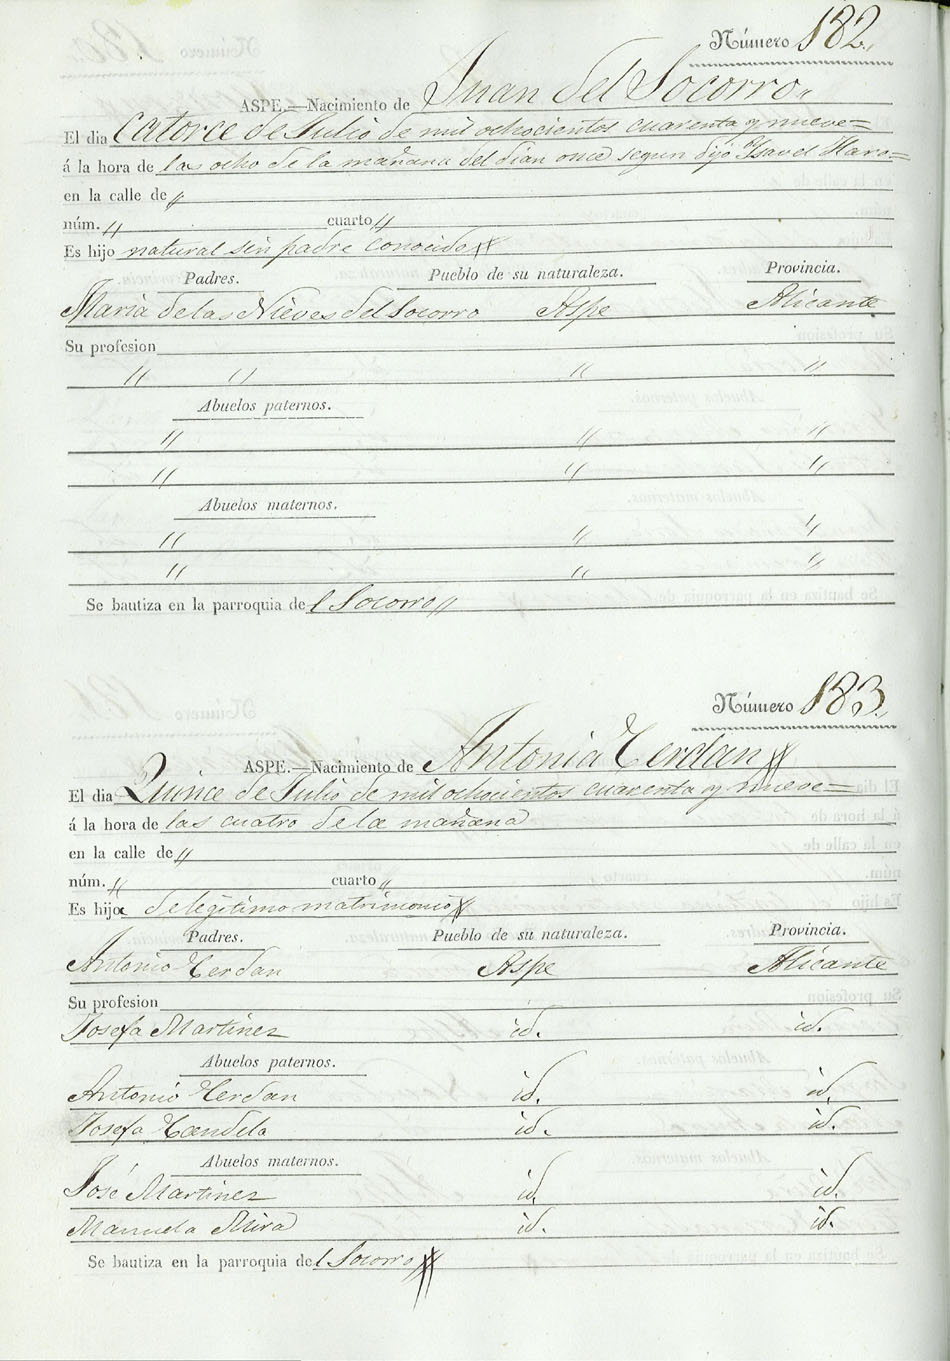 Número 182.
ASPE.—Nacimiento de Juan del Socorro„
El dia Catorce de Julio de mil ochocientos cuarenta y nueve=
á la hora de las ocho de la mañana del dia once segun dijo Ysavel Haro=
en la calle de „
núm. „ cuarto „
Es hijo natural sin padre conocido
Padres. Pueblo de su naturaleza. Provincia.
Maria de las Nieves del Socorro Aspe Alicante
Su profesion
„ „ „ „
Abuelos paternos.
„ „ „
„ „ „
Abuelos maternos.
„ „ „
„ „ „
Se bautiza en la parroquia del Socorro„
Número 183.
ASPE.—Nacimiento de Antonia Cerdan
El dia Quince de Julio de mil ochocientos cuarenta y nueve=
á la hora de las cuatro de la mañana
en la calle de „
núm. „ cuarto „
Es hija de legitimo matrimonio
Padres. Pueblo de su naturaleza. Provincia.
Antonio Cerdan Aspe Alicante
Su profesion
Josefa Martinez id. id.
Abuelos paternos.
Antonio Cerdan id. id.
Josefa Candela id. id.
Abuelos maternos.
José Martinez id. id.
Manuela Mira id. id.
Se bautiza en la parroquia del Socorro